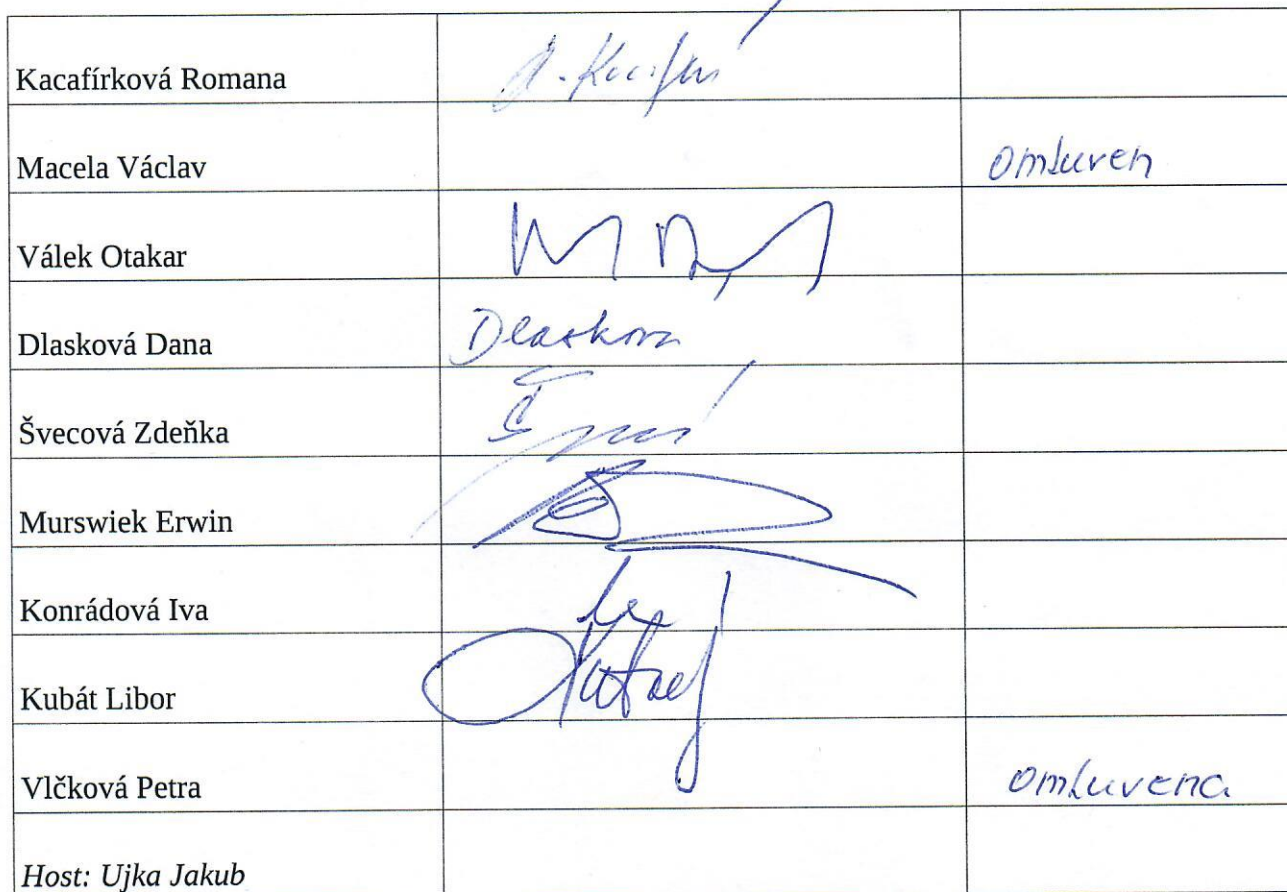 Kacafírková Romana
Macela Václav omluven
Válek Otakar
Dlasková Dana Dlaskova
Švecová Zdeňka
Murswiek Erwin
Konrádová Iva
Kubát Libor
Vlčková Petra omluvena
Host: Ujka Jakub